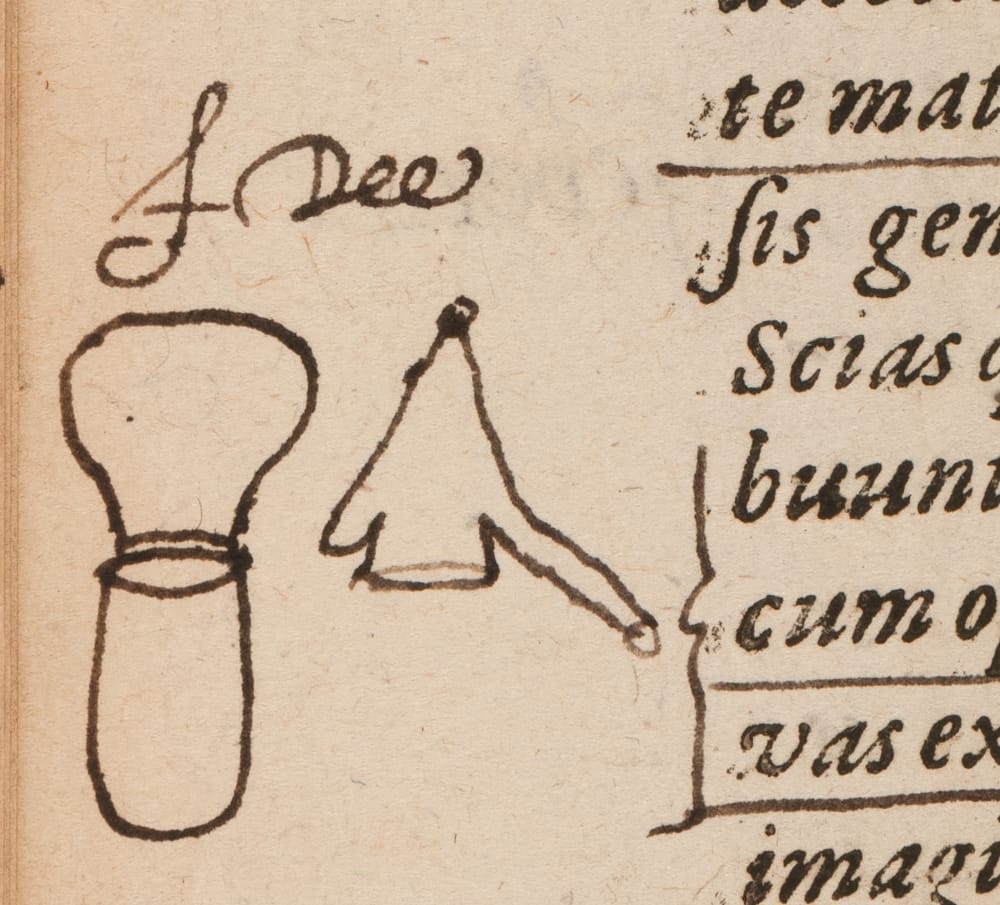 J Dee
te mat
ſis gen
Scias
buunt
cum o
vas ex
imagi